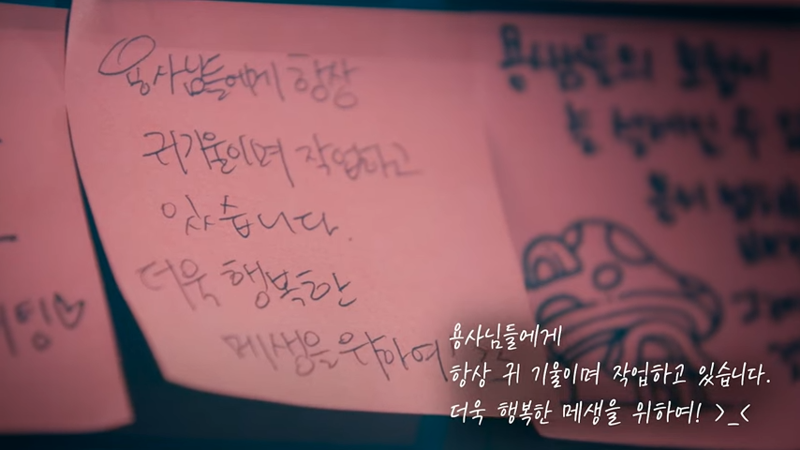 용사님들에게 항상
귀 기울이며 작업하고
있습니다.
더욱 행복한
메생을 위하여!
용쌤들의 모험이
팅♡
용사님들에게
항상 귀 기울이며 작업하고 있습니다.
더욱 행복한 메생을 위하여! >_<